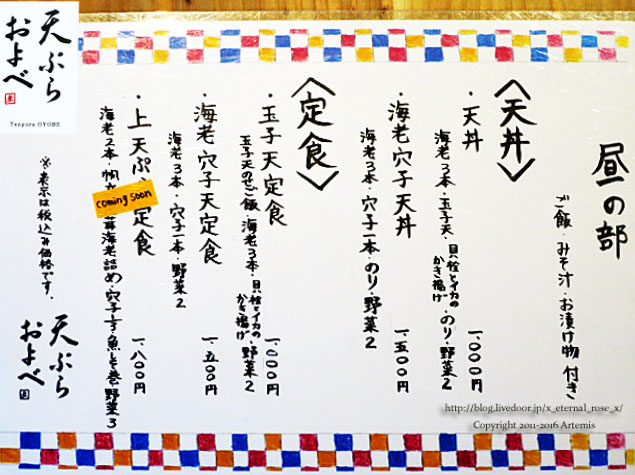 昼の部
ご飯・みそ汁・お漬け物 付き
〈天丼〉
・天丼 一、〇〇〇円
海老3本・玉子天・貝柱とイカのかき揚げ・のり・野菜2
・海老穴子天丼 一、五〇〇円
海老3本・穴子一本・のり・野菜2
〈定食〉
・玉子天定食 一、〇〇〇円
玉子天のせご飯・海老3本・貝柱とイカのかき揚げ・野菜2
・海老穴子天定食 一、五〇〇円
海老3本・穴子一本・野菜2
・上天ぷ 定食 一、八〇〇円
coming soon
海老2本・帆 海老詰め・穴子 魚 巻 野菜3
※表示は税込み価格です。
天ぷら
およべ
天ぷら
およべ
Tenpura OYOBE
http://blog.livedoor.jp/x_eternal_rose_x/
Copyright 2011-2016 Artemis